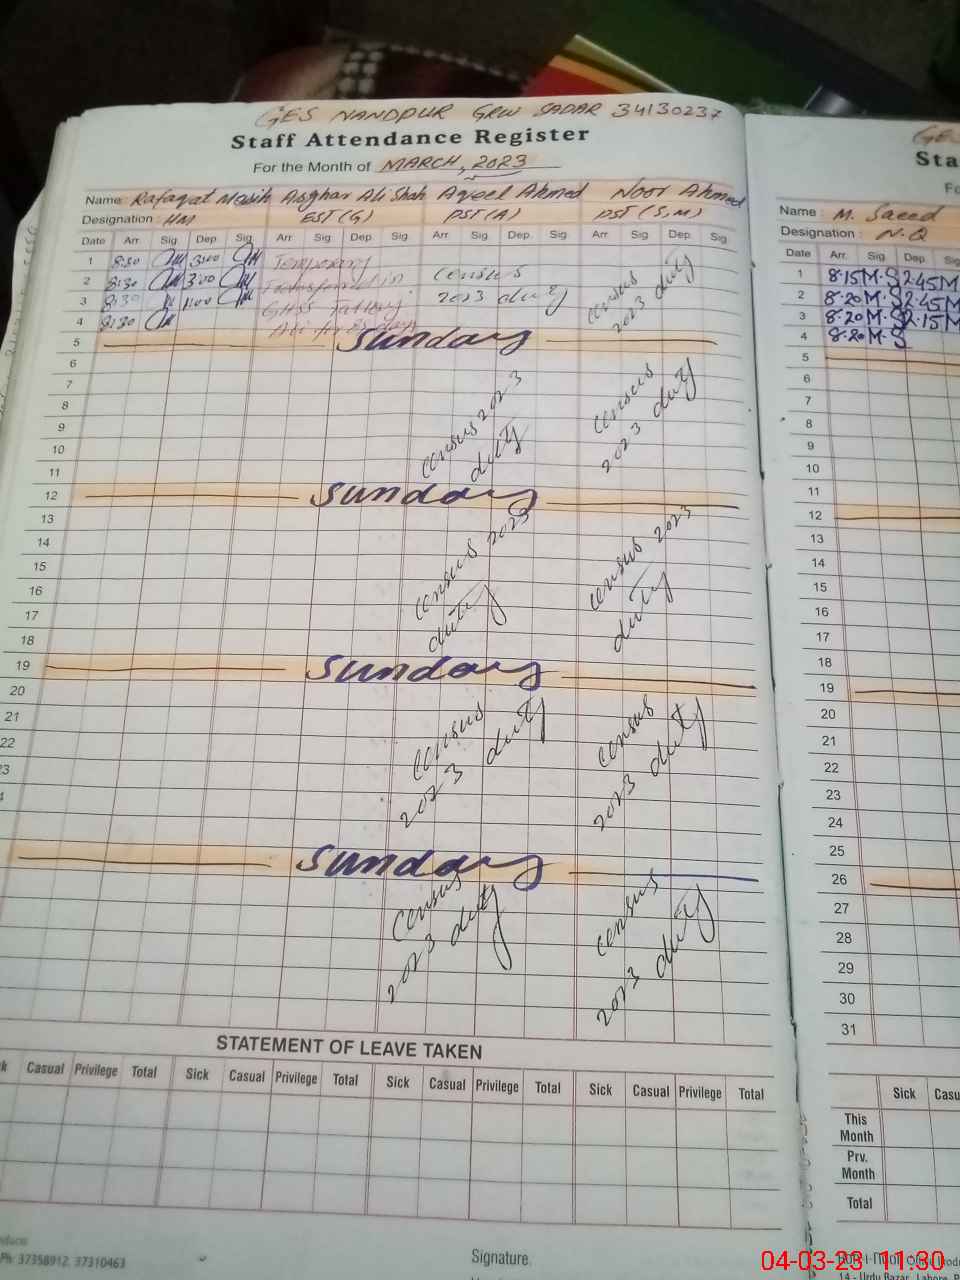 GES NANDPUR GRW SADAR 34130237
Staff Attendance Register
For the Month of MARCH, 2023
Name: Rafaqat Masih Asghar Ali Shah Aqeel Ahmed Noor Ahmed
Designation: HM EST(G) PST(A) PST(S,M)
Date Arr. Sig. Dep. Sig. Arr. Sig. Dep. Sig. Arr. Sig. Dep. Sig. Arr. Sig. Dep. Sig.
1 8:30 3:00 Temporary
2 8:30 3:00 census
3 8:30 GHSS 2023 duty census 2023 duty
4 8:30
5 Sunday
6
7
8 census 2023 duty census 2023 duty
9
10
11
12 Sunday
13
14
15 census 2023 duty census 2023 duty
16
17
18
19 Sunday
20
21
22 census 2023 duty census 2023 duty
23
Sunday
census 2023 duty census 2023 duty
STATEMENT OF LEAVE TAKEN
Casual Privilege Total Sick Casual Privilege Total Sick Casual Privilege Total Sick Casual Privilege Total
Ph: 37358912, 37310463
Signature.
Sta
Name: M. Saeed
Designation: N.Q
Date Arr. Sig. Dep. Sig.
1 8:15 M.S 2:45 M
2 8:20 M.S 2:45 M
3 8:20 M.S 2:15 M
4 8:20 M.S
5
6
7
8
9
10
11
12
13
14
15
16
17
18
19
20
21
22
23
24
25
26
27
28
29
30
31
Sick
This Month
Prv. Month
Total
14 - Urdu Bazar, Lahore
04-03-23 11:30